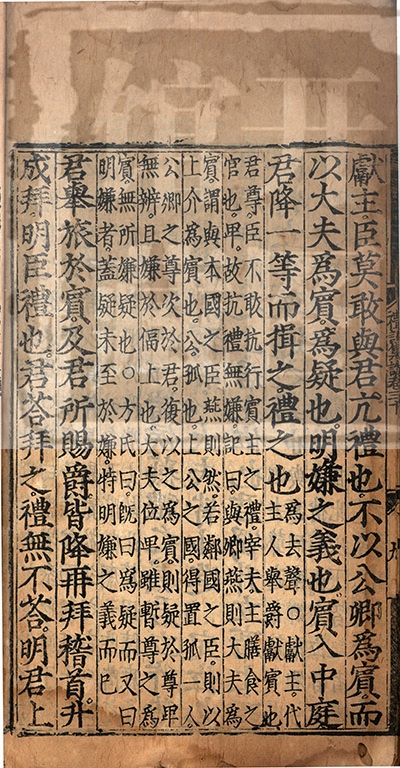 獻主。臣莫敢與君亢禮也。不以公卿爲賓。而
以大夫爲賓。爲疑也。明嫌之義也。賓入中庭
君降一等而揖之。禮之也
爲去聲○獻主。代
主人舉爵獻賓也
君尊。臣不敢抗行賓主之禮。宰夫主膳食之
官也。卑。故抗禮無嫌。記曰。與卿燕則大夫爲
賓。謂與本國之臣燕則然。若鄰國之臣。則以
上介爲賓也。公。孤也。上公之國。得置孤一人
公卿之尊次於君。復以之爲賓。則疑於尊卑
無辨。且嫌於偪上也。大夫位卑。雖暫尊之爲
賓。無所嫌疑也○方氏曰。旣曰爲疑。而又曰
明嫌者。蓋疑未至於嫌。特明嫌之義而已
君舉旅於賓。及君所賜爵。皆降再拜稽首。升
成拜。明臣禮也。君荅拜之。禮無不荅。明君上